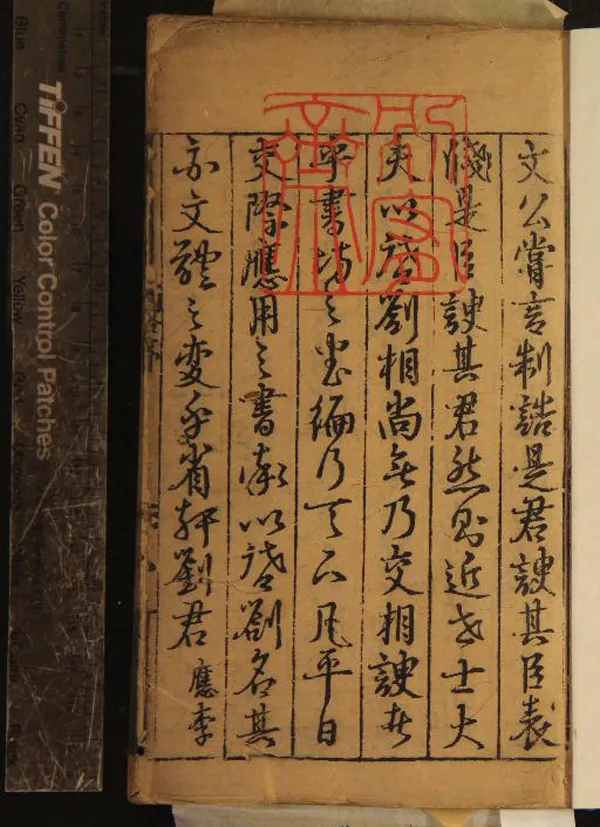 文公嘗言制誥是君諛其臣表
牋是臣諛其君然則近世士大
夫以啓劄相尚無乃交相諛者
乎書坊之書編行天下凡平日
交際應用之書概以啓劄名其
亦文體之変乎省軒劉君應李
TIFFEN Color Control Patches
Blue
Cyan
Green
Yellow
Centimetres